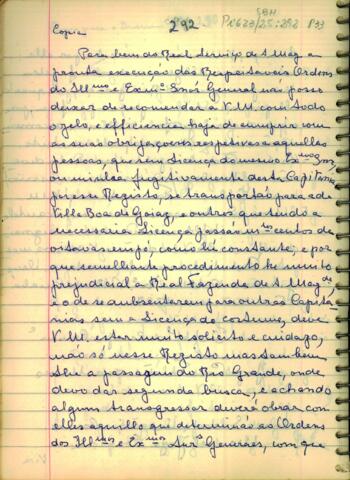 Copia
292
SBH
Pr 629/25:292 P33
Para bem do Real Serviço de S. Mag e
pronta execução das Respeitaveis Ordens
do Illmo e Exmo Snor General não posso
deixar de recomendar a V.M. com todo
o zelo, e efficiencia haja de cumprir com
as suas obrigaçoens respetivas a aquelles
pessoas, que sem Licença do mesmo Exmo Snor
ou minha fugitivamente desta Capitania
por esse Registo, se transportão para a de
Villa Boa de Goiaz, e outros que tendo a
necessaria Licença passão mtos centos de
oitavas em pó, como hé constante; e por
que semelhante procedimento he muito
prejudicial a Real Fazenda de S. Magde
e o de se auzenterem para outras Capita
nias sem a Licença do costume, deve
V.M. estar muito solicito e cuidazo,
não só nesse Registo mas tambem
athe a passagem do Rio Grande, onde
devo dar segunda busca, e achando
algum transgressor deverá obrar com
elles aquillo que determinão as Ordens
dos Illmos e Exmos Snrs Generaes, com que